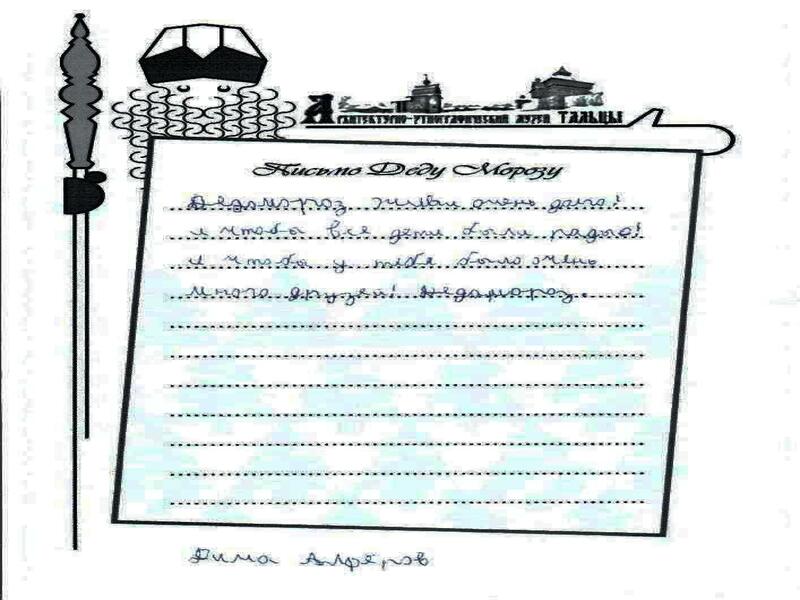 Архитектурно-этнографический музей ТАЛЬЦЫ
Письмо Деду Морозу
Дедамороз живи очень долго!
и чтобы все дети были рады!
и чтобы у тебя было очень
много друзей! Дедамороз.
Дима Алферов